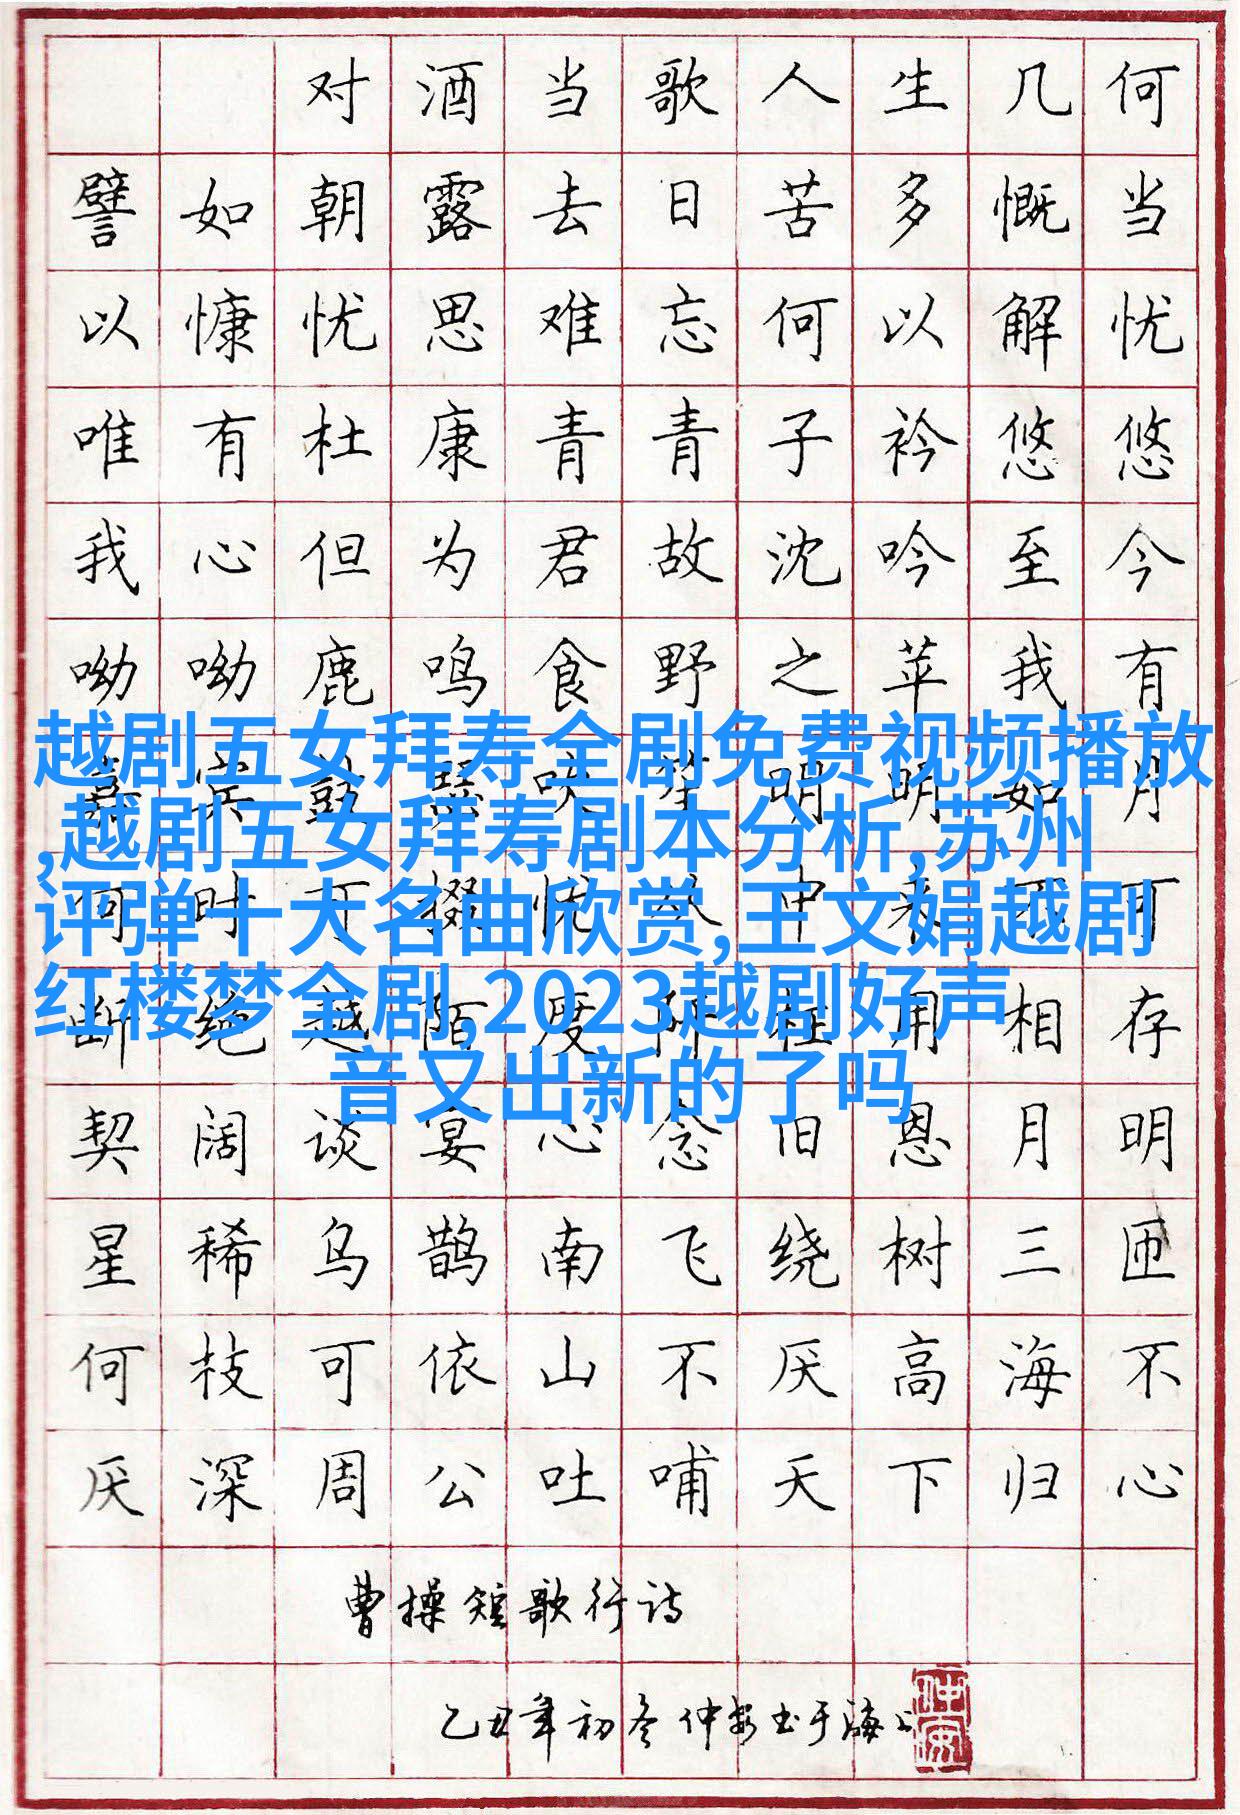 对酒当歌人生几何
譬如朝露去日苦多慨当
以慷忧思难忘何以解忧
唯有杜康青青子衿悠悠
我心但为君故沈吟至今
呦呦鹿鸣食野之苹我有
越剧五女拜寿全剧免费视频播放
嘉宾鼓瑟吹笙明明如月
,越剧五女拜寿剧本分析,苏州
何时可掇忧从中来不可
评弹十大名曲欣赏,王文娟越剧
断绝越陌度阡枉用相存
红楼梦全剧,2023越剧好声
音又出新的了吗
契阔谈宴心念旧恩月明
星稀乌鹊南飞绕树三匝
何枝可依山不厌高海不
厌深周公吐哺天下归心
曹操短歌行诗
乙丑年初冬仲安书于海上
仲安